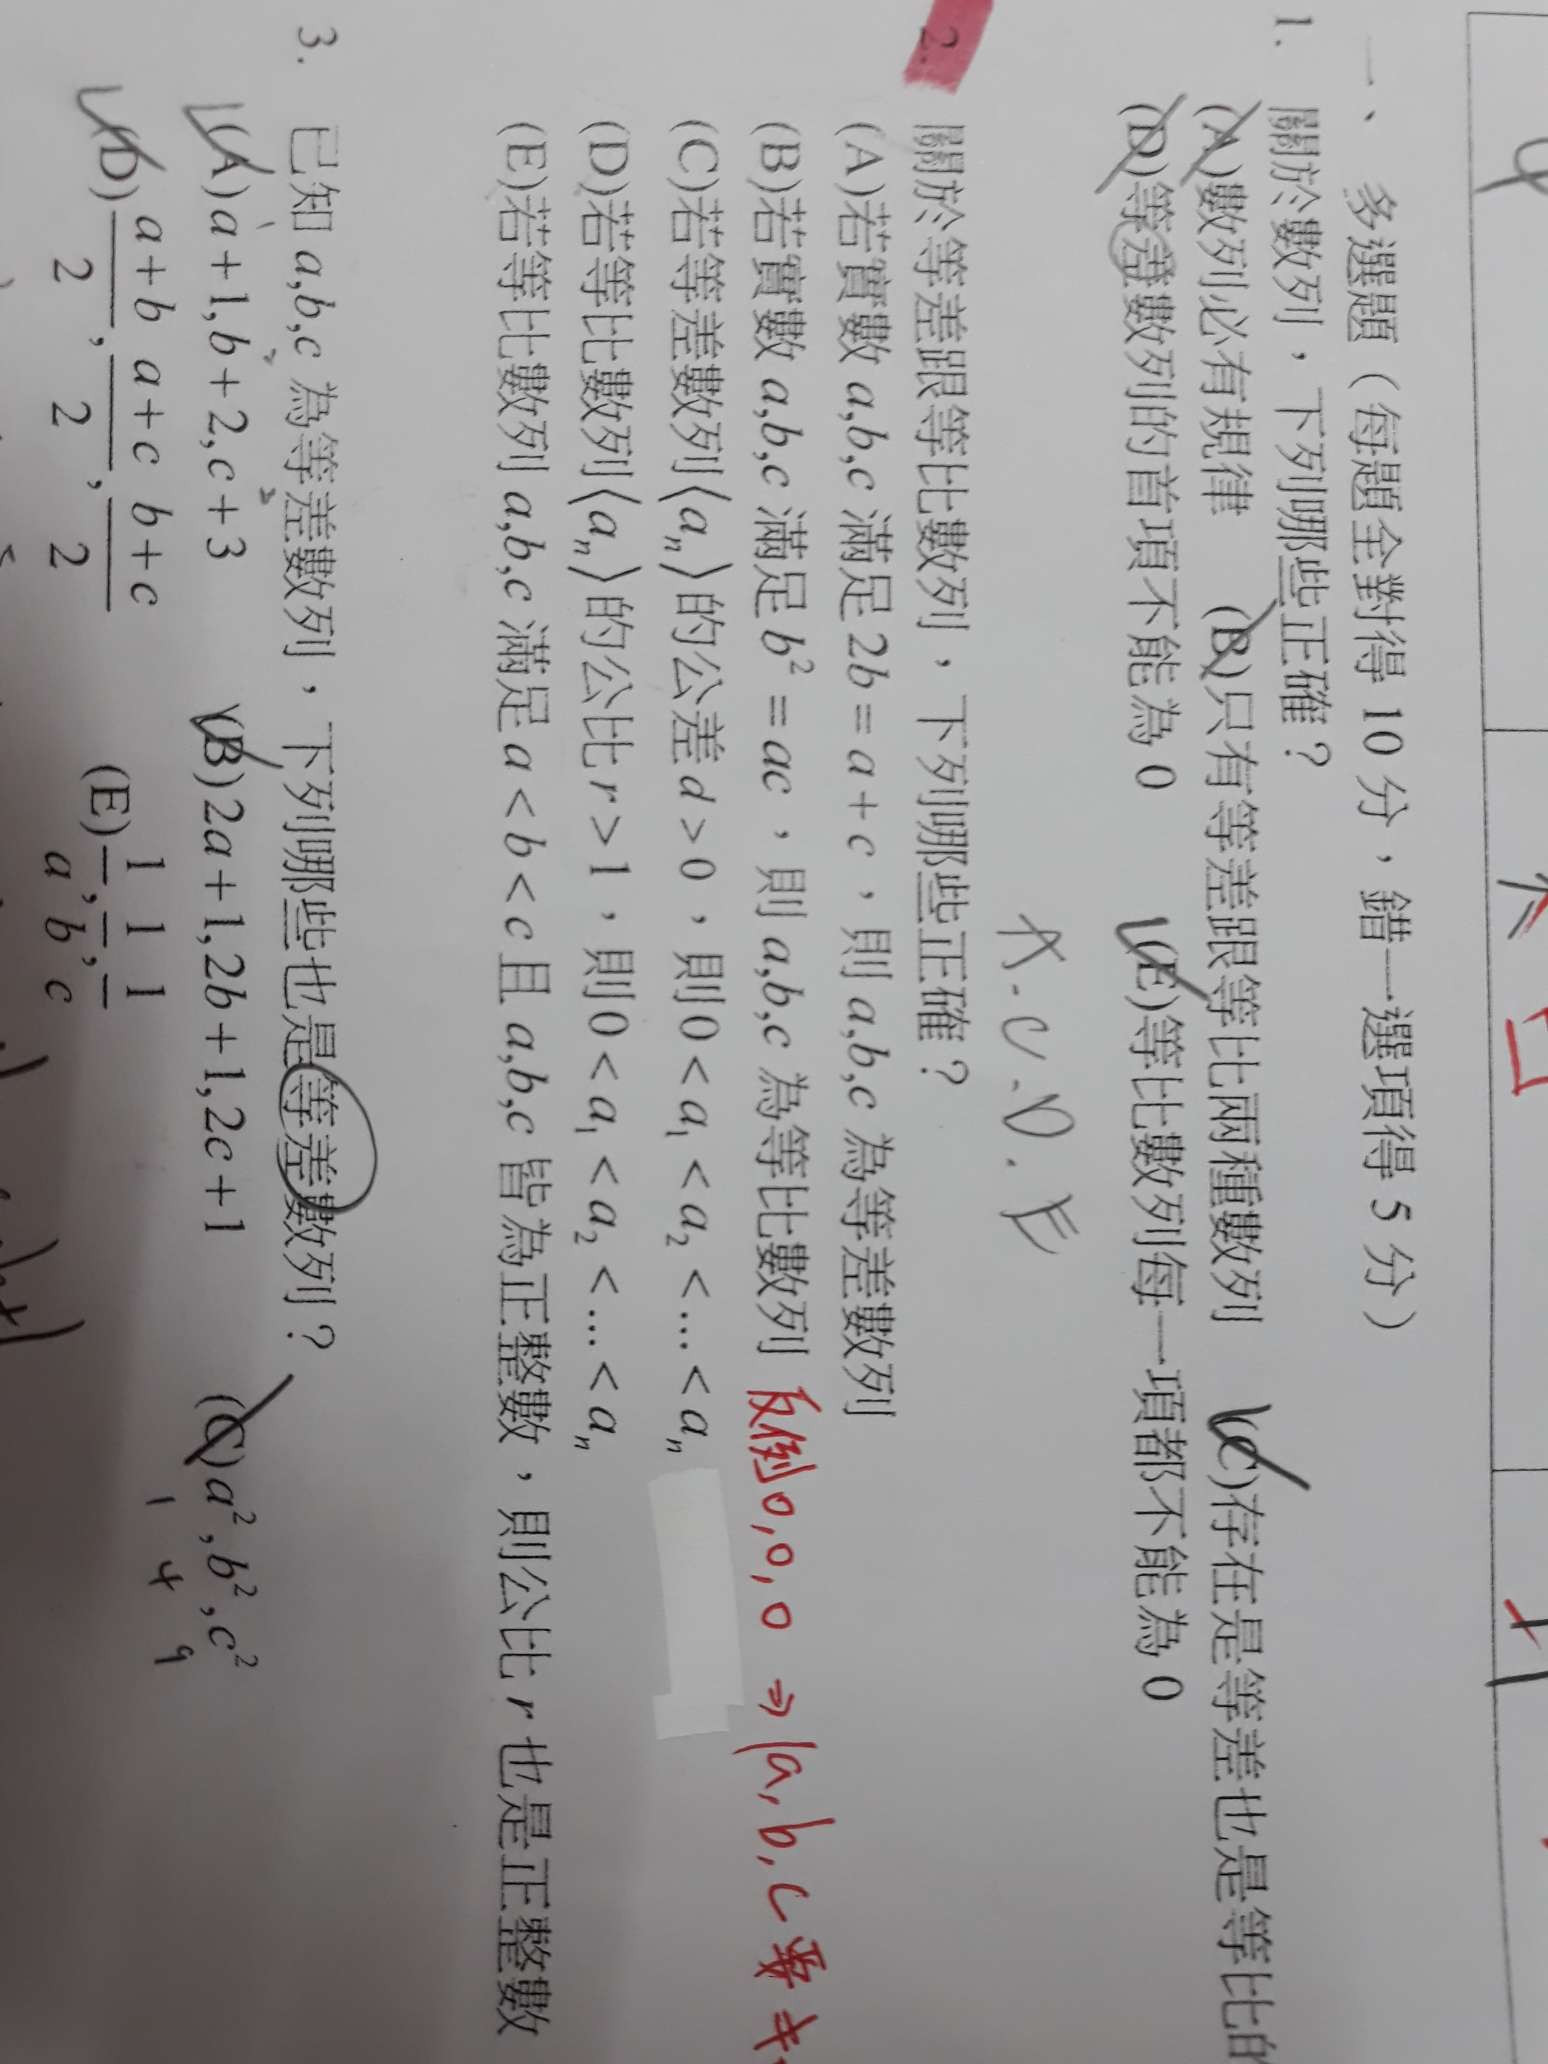 一、多選題（每題全對得 10 分，錯一選項得 5 分）
1. 關於數列，下列哪些正確？
(A)數列必有規律 (B)只有等差跟等比兩種數列 (C)存在是等差也是等比的
(D)等差數列的首項不能為 0 (E)等比數列每一項都不能為 0
A.C.D.E
2. 關於等差跟等比數列，下列哪些正確？
(A)若實數 a,b,c 滿足 2b = a + c，則 a,b,c 為等差數列
(B)若實數 a,b,c 滿足 b² = ac，則 a,b,c 為等比數列 反例 0,0,0 ⇒ a,b,c 要≠
(C)若等差數列⟨aₙ⟩的公差 d > 0，則 0 < a₁ < a₂ < ... < aₙ
(D)若等比數列⟨aₙ⟩的公比 r > 1，則 0 < a₁ < a₂ < ... < aₙ
(E)若等比數列 a,b,c 滿足 a < b < c 且 a,b,c 皆為正整數，則公比 r 也是正整數
3. 已知 a,b,c 為等差數列，下列哪些也是等差數列？
1 2 3
(A) a+1, b+2, c+3 (B) 2a+1, 2b+1, 2c+1 (C) a², b², c²
1 4 9
(D) (a+b)/2, (a+c)/2, (b+c)/2 (E) 1/a, 1/b, 1/c